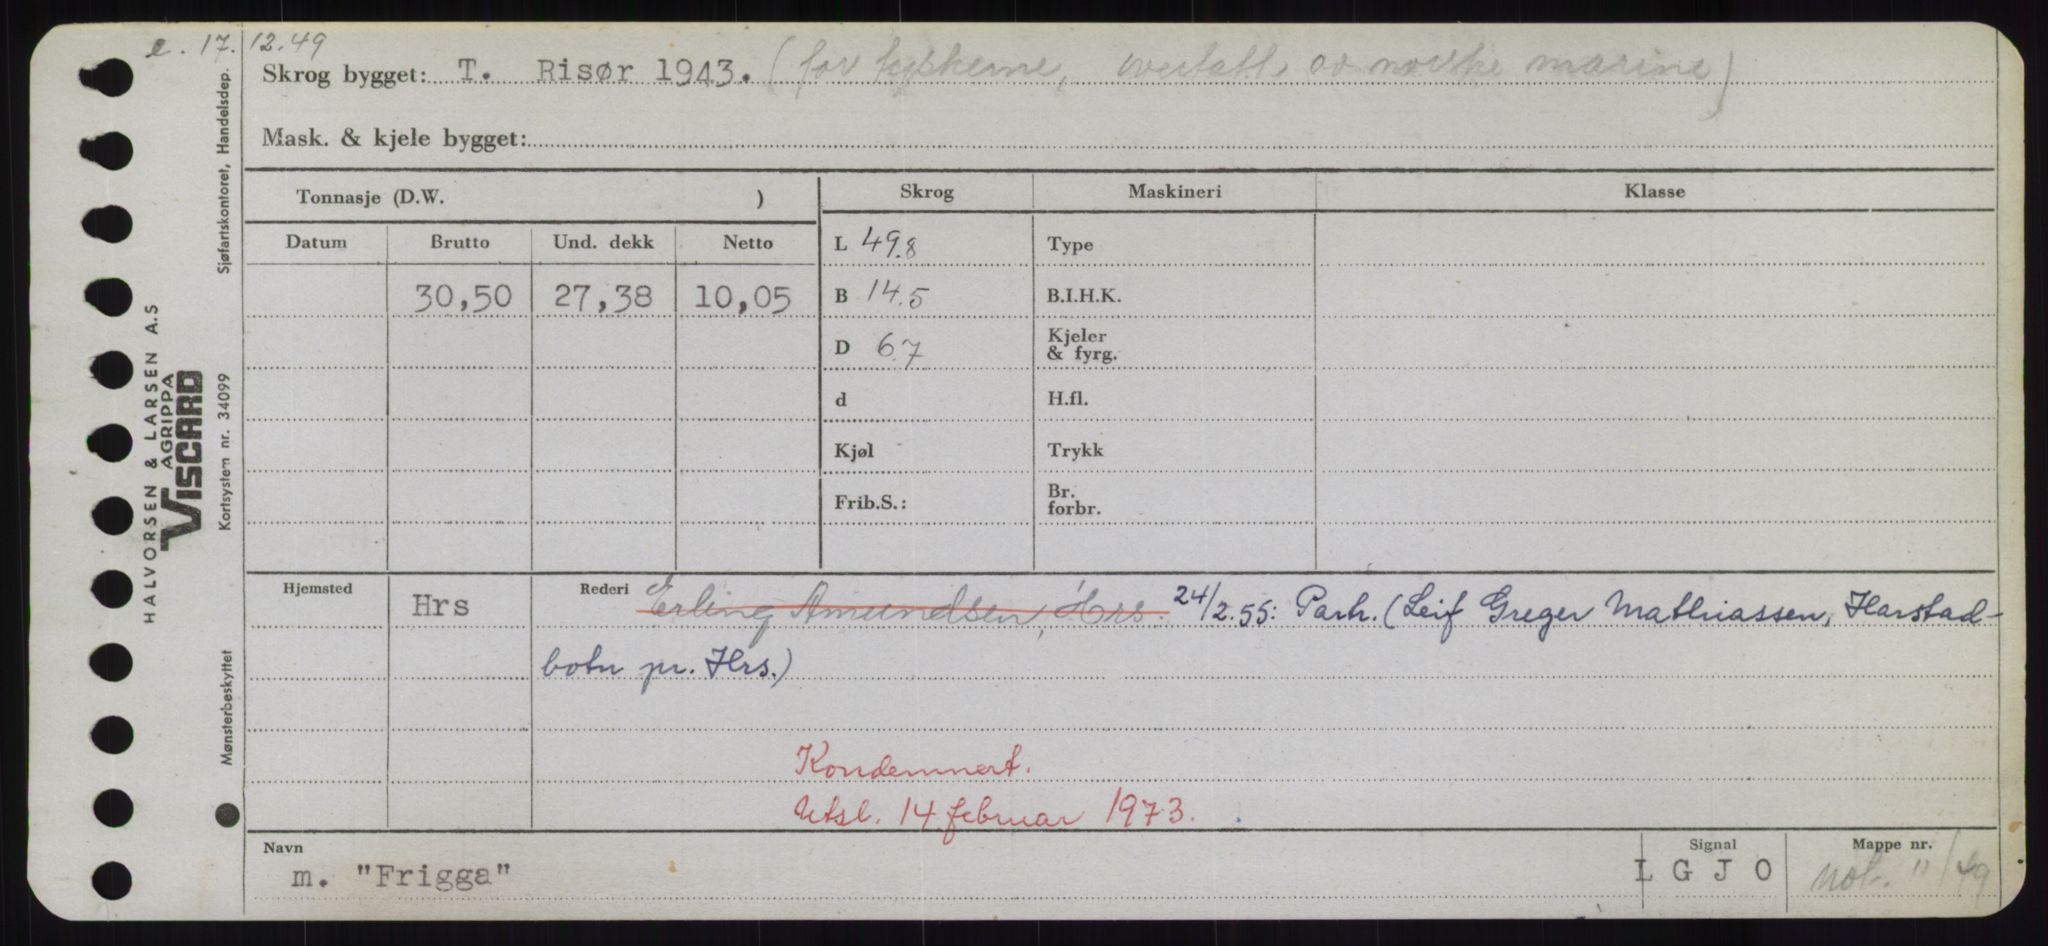 e. 17.12.49
Skrog bygget: T. Risør 1943. (for tyskerne, overtatt av norske marine)
Mask. & kjele bygget:
Tonnasje (D.W. ) Skrog Maskineri Klasse
Datum Brutto Und. dekk Netto L 49.8 Type
30,50 27,38 10,05 B 14.5 B.I.H.K.
D 6.7 Kjeler & fyrg.
d H.fl.
Kjøl Trykk
Frib.S.: Br. forbr.
Hjemsted Hrs Rederi Erling Amundsen, Hrs. 24/2.55: Partr. (Leif Greger Mathiassen, Harstad-
botn pr. Hrs.)
Kondemnert.
Utsl. 14 februar 1973.
Navn Signal Mappe nr.
m. "Frigga" L G J O not. 11/49
Sjøfartskontoret, Handelsdep.
HALVORSEN & LARSEN A.S
AGRIPPA
VISCARD
Kortsystem nr. 34099
Mønsterbeskyttet